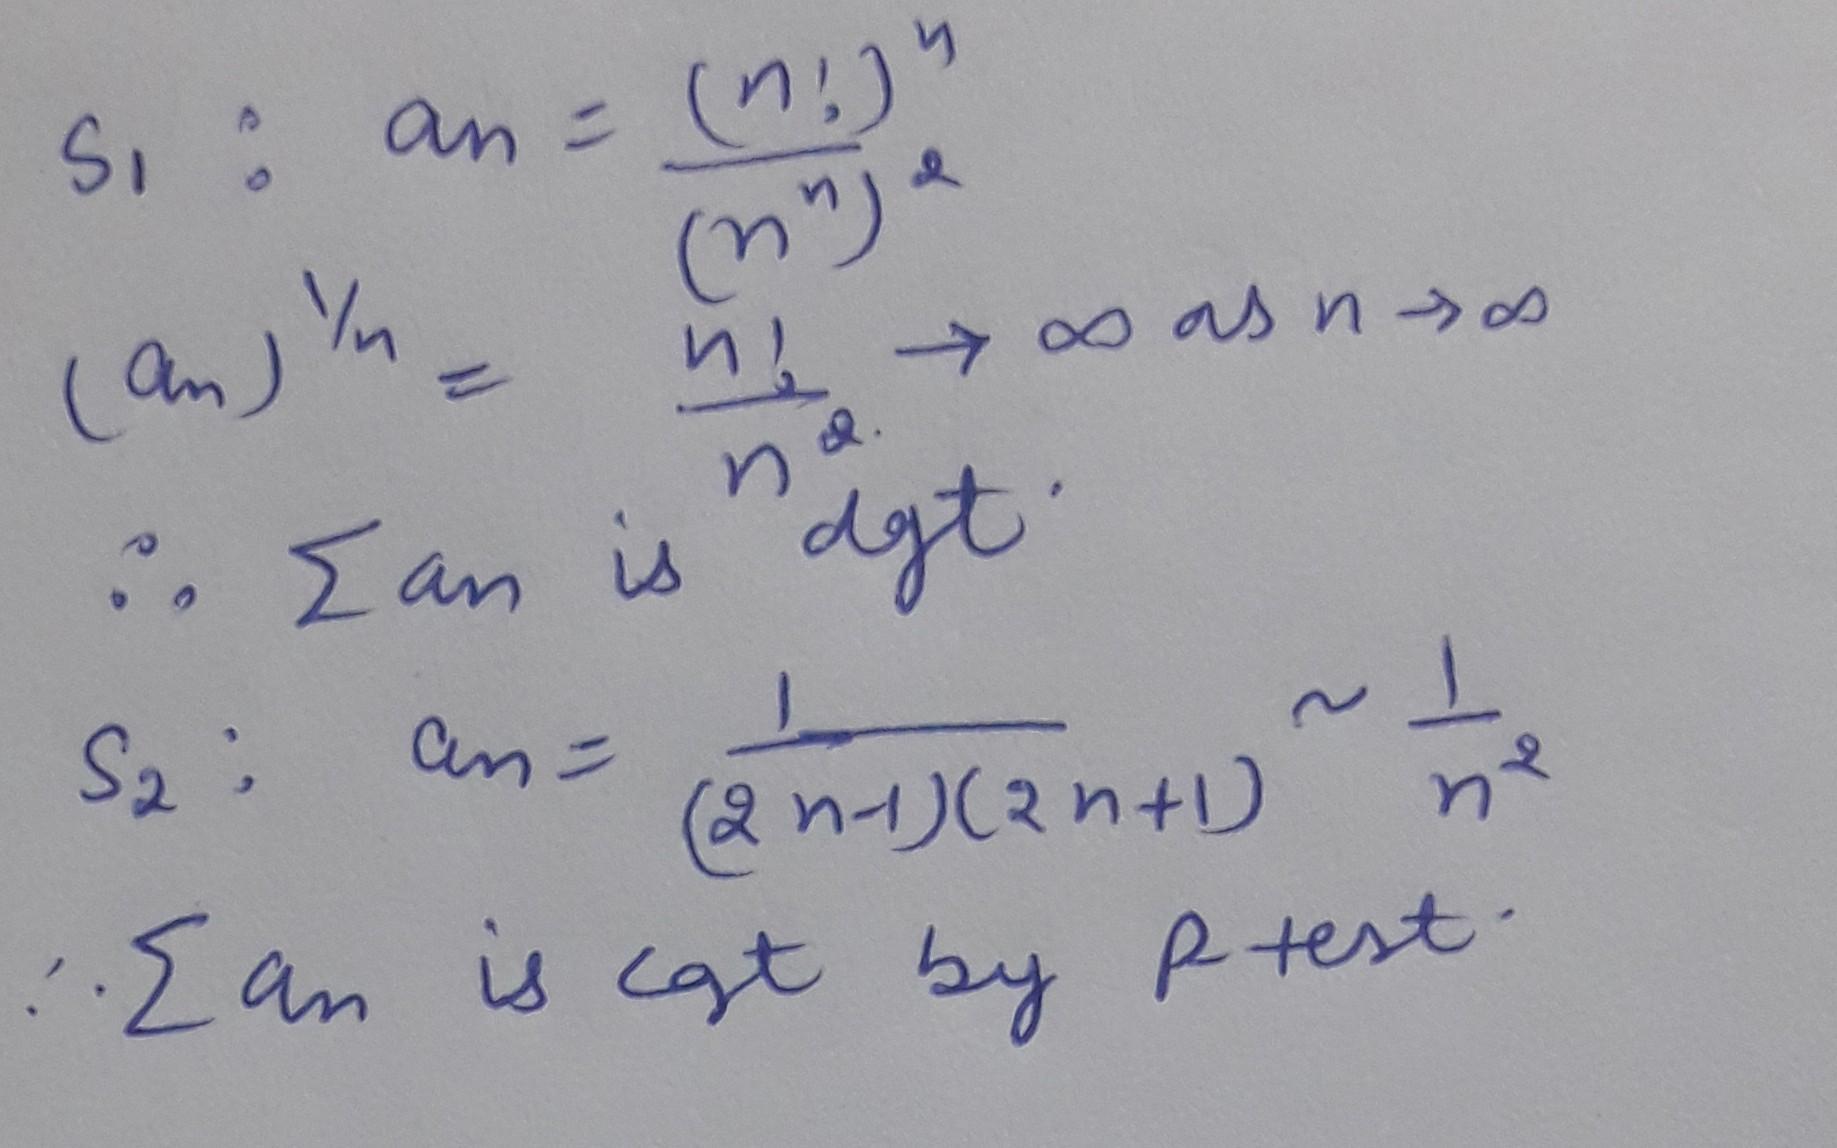 S₁ : an = (n!)ⁿ / (nⁿ)²
(an)^1/n = n! / n². → ∞ as n → ∞
∴ Σ an is dgt.
S₂ : an = 1 / (2n-1)(2n+1) ~ 1 / n²
∴ Σ an is cgt by P test.